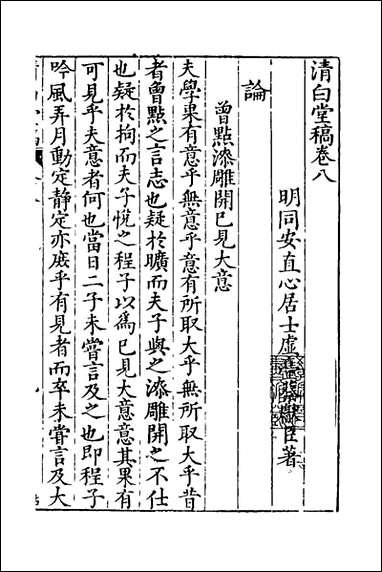 清白堂稿卷八
明同安直心居士虛臺蔡獻臣著
論
曾點漆雕開已見大意
夫學果有意乎無意乎意有所取大乎無所取大乎昔
者曾點之言志也疑於曠而夫子與之漆雕開之不仕
也疑於拘而夫子悅之程子以為已見大意意其果有
可見乎夫意者何也當日二子未嘗言及之也即程子
吟風弄月動定靜定亦庶乎有見者而卒未嘗言及大